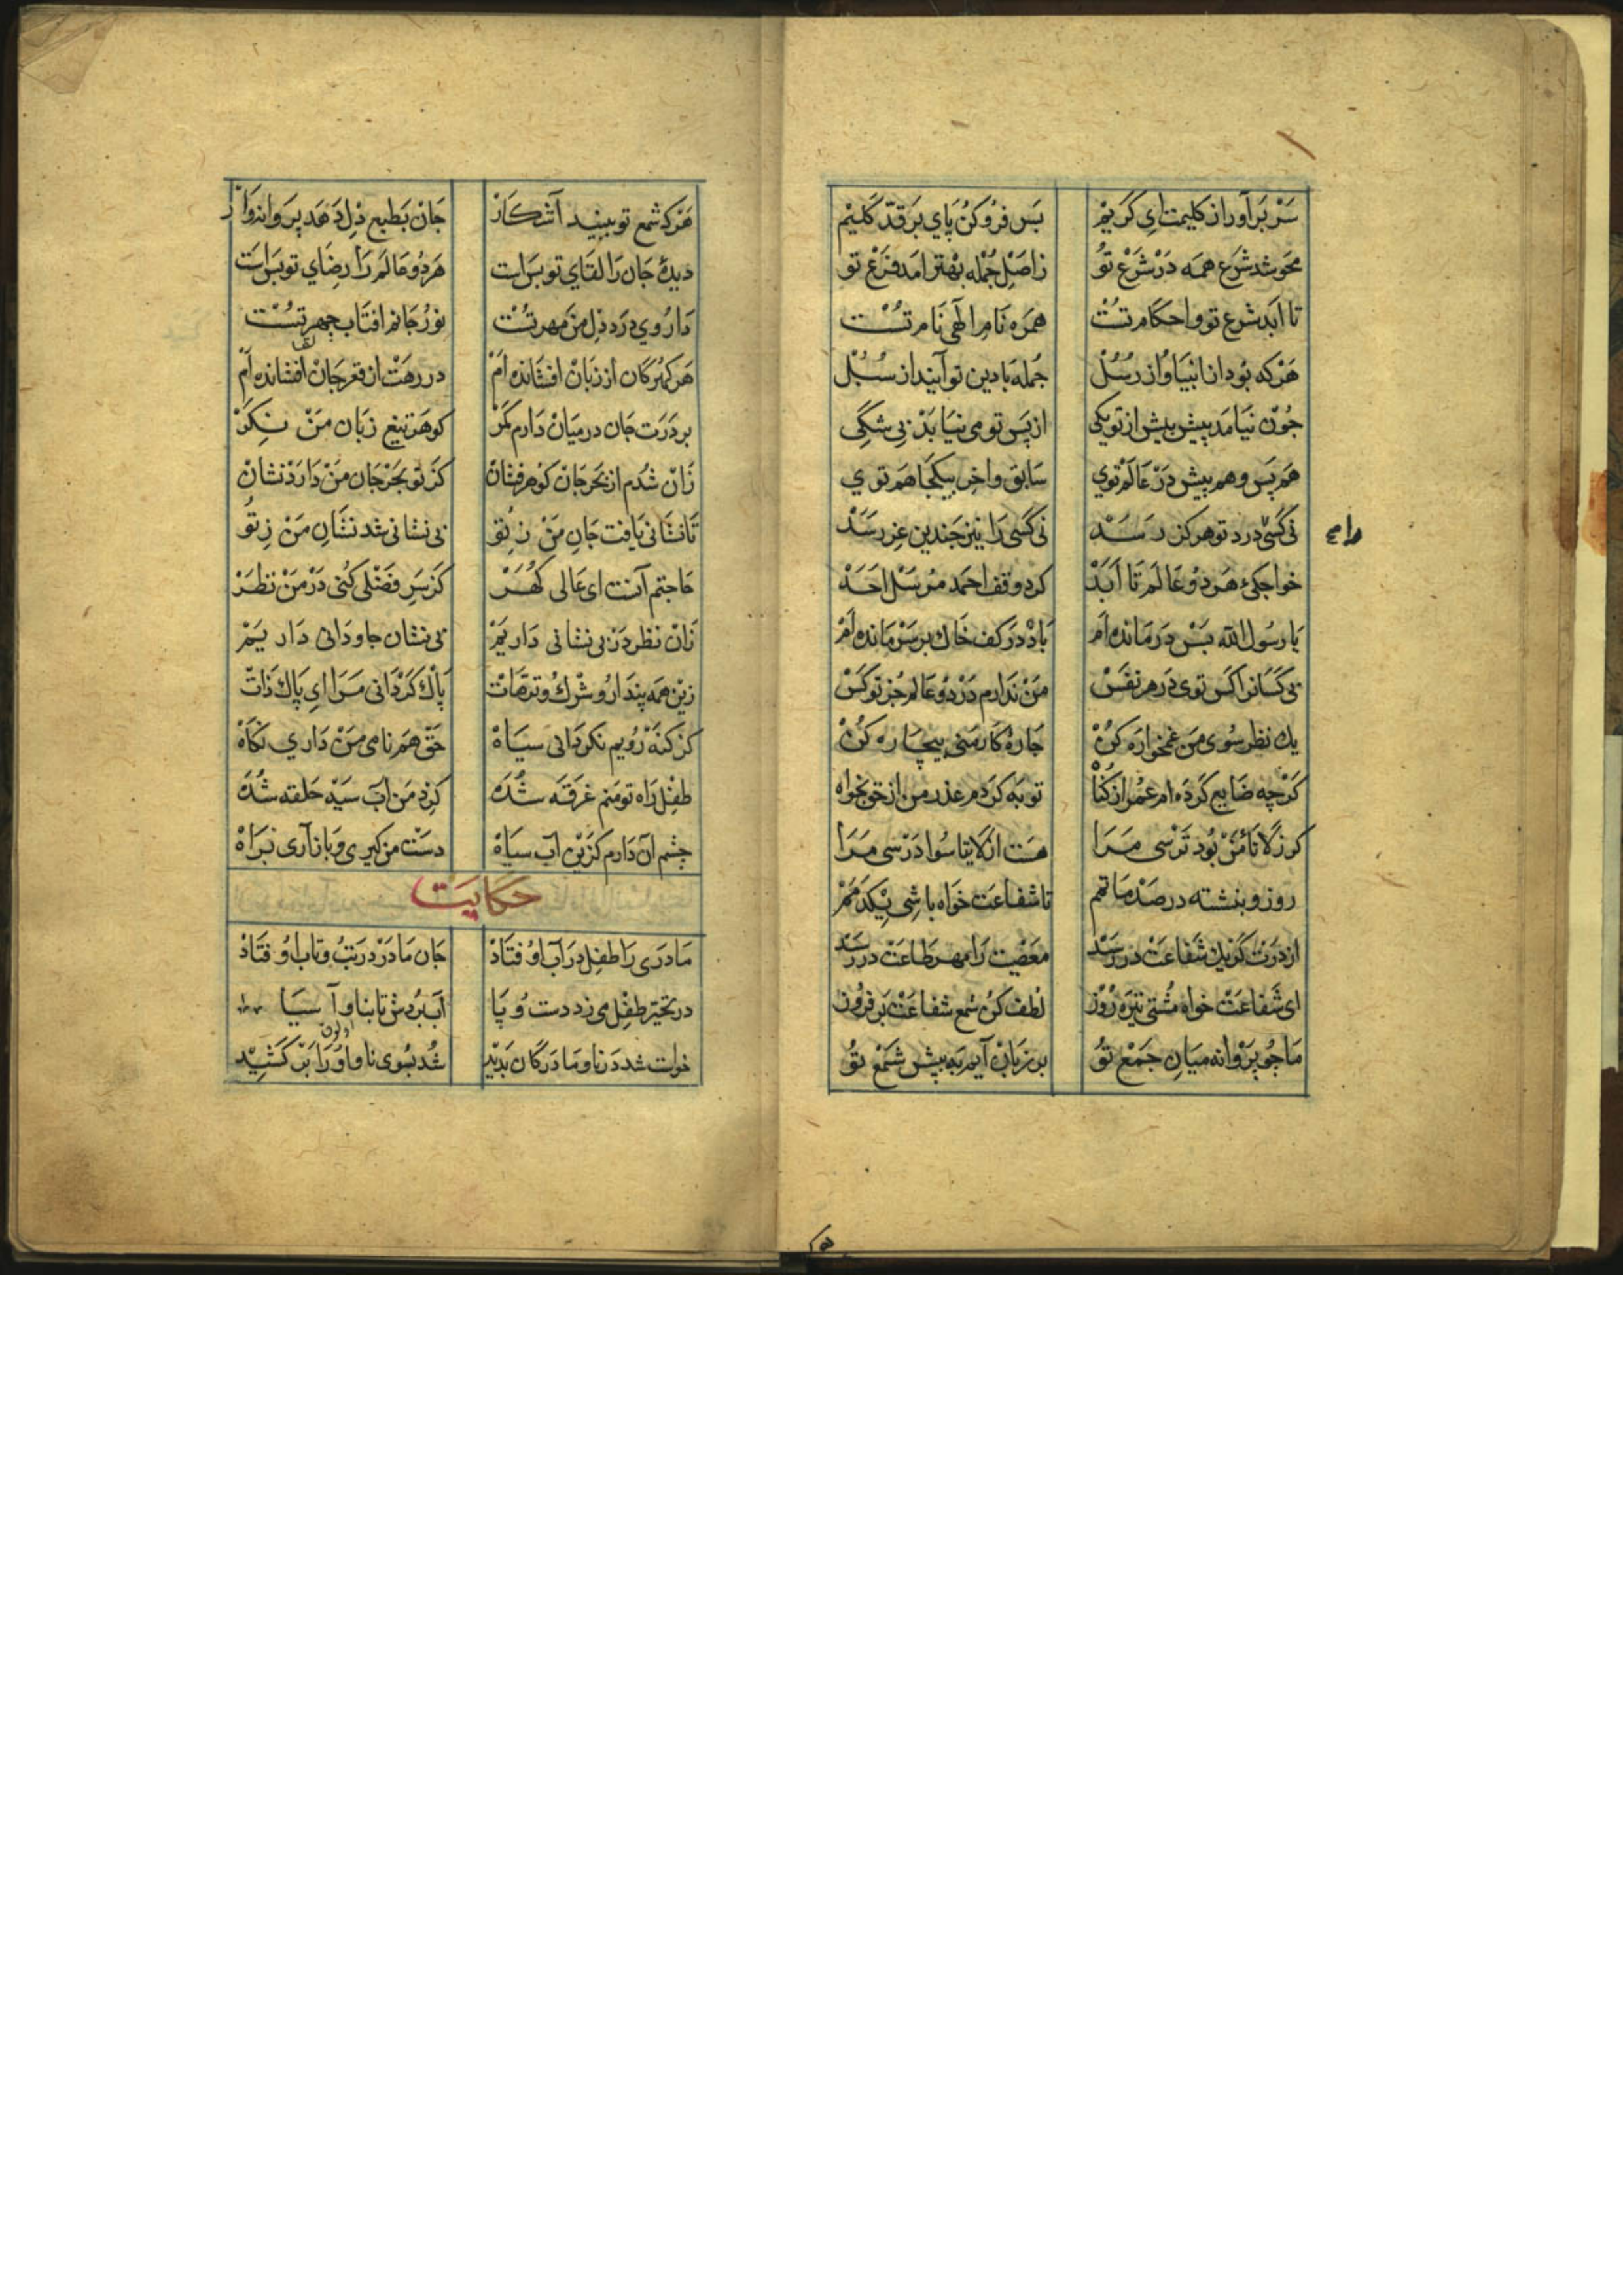 سَرْ بَرآور از كليمت اي كَريْم بَس فرُو كنُ پَاي بَر قدّ كليْم
محَو شد شَرع همَه دَرْ شَرْع تُو زاصْلِ جُمْله بهْتَر امَد فَرْع تو
تا اَبَد شرع تو و احكام تسُت همرَه نَامِ الٓهى نَام تسُت
هَرْكه بُود از انبيَا و از رسُلْ جُمله بَا دين تو آيند از سُبُلْ
جُوْن نيَامَد پيش پيش از تو يكى از پَس تو مى نيَايَدْ بى شكِى
هَم پَس و هم پيش دَرْ عَالَمْ توي سَابق و اخِر بيكجَا هَم توي
نى كَسىْ در دِ تو هركز رسَدْ نى كَسى رَا نيْز جَندين عِز رسَدْ
خواجكئ هَر دوُ عَالَم تَا اَبَدْ كرد وقف احمَد مُرْسَل احَدْ
يَا رسُول الله بَسْ دَرمَانده اَم بَادْ دَر كف خَاك بر سَرْ مَانده اَمْ
بى كَسَانرا كَس توى دَر هر نفَسْ مَنْ نَدَارم دَر دوُ عَالم جُز تو كَسْ
يك نظر سُوى مَن غمخوارَه كنُ چَارهٔ كَار مَنى بيچَاره كنُ
كَرْچه ضَايع كَردَه ام عمُر از كنُاْ توبَه كَردَم عذر من از حق بخواه
كر زلا تَأمَنْ بُود تَرْسى مَرَا هسَت از لا يَاسُوا دَرْسى مَرَا
روز و بنشسته در صَدْ مَاتمم تا شفاعَت خوَاه باشى يكدَمَمْ
از دَرَت كَر يك شَفاعَت در رسَدْ معَصْيت رَا مهر طَاعَت در رسَدْ
اى شَفاعَتْ خواه مُشتى تيرَه رُوْز لُطف كنُ شمع شفاعَتْ بَر فرُوز
مَا چُو پَرْوانه ميَانِ جَمْعِ تُو بر زبَانْ آييم به پيش شَمْعِ تُو
هَركه شمع تو ببيند آشكَارْ جَانْ بَطبع دِل دَهَد پرَوانه وَار
ديدهٔ جَان رَا لقَاي تو بسَ است هَر دوُ عَالَم رَا رضَاي تو بسَ است
دَارُوي دَرد دِل مَن مهر تسُت نورُ جَانم افتَاب چهر تسُت
هر كهُر كان از زبَانْ افشَانده اَمْ در رهَتْ از قعر جَانْ افشانده اَمْ
بر دَرَت جان در ميَانْ دَارم كَمَرْ كوهَر تيغ زبَان مَنْ نِكَرْ
زَانْ شُدم از بَحر جَانْ كَوهر فشَانْ كَز تو بَحْر جَان مَنْ دَارَدْ نشانْ
تَا نشَانى يَافت جَانِ مَنْ زتو بى نشانى شد نشَانِ مَنْ زِتوُ
حَاجتم آنست اى عَالى كُهَرْ كَز سَرِ فضْلى كُنى دَرْ مَنْ نظَرْ
زَانْ نظر دَرْ بى نشانى داريَمْ بى نشان جاودَانى داريَمْ
زيْن همَه پندَار و شرْك و ترَّهَات پاَك كَرْدَانى مَرَا اي پَاك ذَات
كز كنَهْ رُويم نكردَانى سيَاهْ حَق هم نامى مَنْ دَاري نكَاهْ
طفِل رَاه تو مَنم غرقَه شُدَه كِرد مَن آب سيَهْ حَلقه شُدَه
چشم آن دَارم كَزيْن آب سيَاهْ دسَت من كيرى و باز آرى برَاهْ
حكايَت
مَادَرى رَا طفل در آب اوُفتَادْ جَان مَادَرْ در تَبُ و تَاب اوُفتَادْ
در تحيّر طفِل مى زد دست و پَا آب برُدش تا بناو آسيَا
خواست شد دَر ناو مَادر كان بَديْد شُد بسُوى ناو و اوُ رَا بَرْ كَشيِدْ